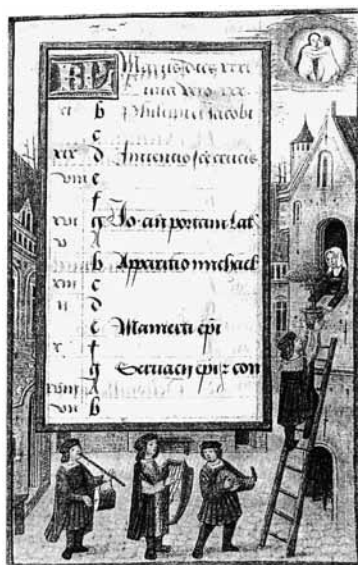 KL Maius dies xxxi
luna xxx
xi b Philippi et Jacobi
c
xix d Inventio sce crucis
viii e
f
xvi g Jo. an portam lat
v A
b Apparitio michael
xiii c
ii d
e Mamerti epi
x f
g Servacii epi z con
xviii A
vii b